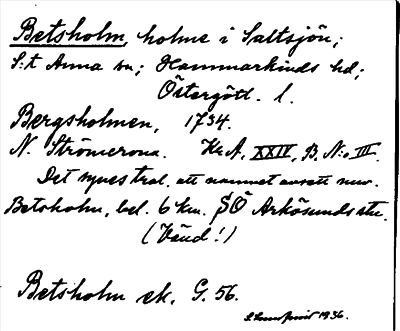 Betsholm, holme i Saltsjön;
S:t Anna sn; Hammarkinds hd;
Östergötl. l.
Bergsholmen, 1734.
N. Strömcrona. Kr.A, XXIV, B, N:o III.
Det synes trol. att namnet avsett nuv.
Betsholm, bel. 6 km. SÖ Arkösunds stn.
(Vänd!)
Betsholm ek. G. 56.
1936.